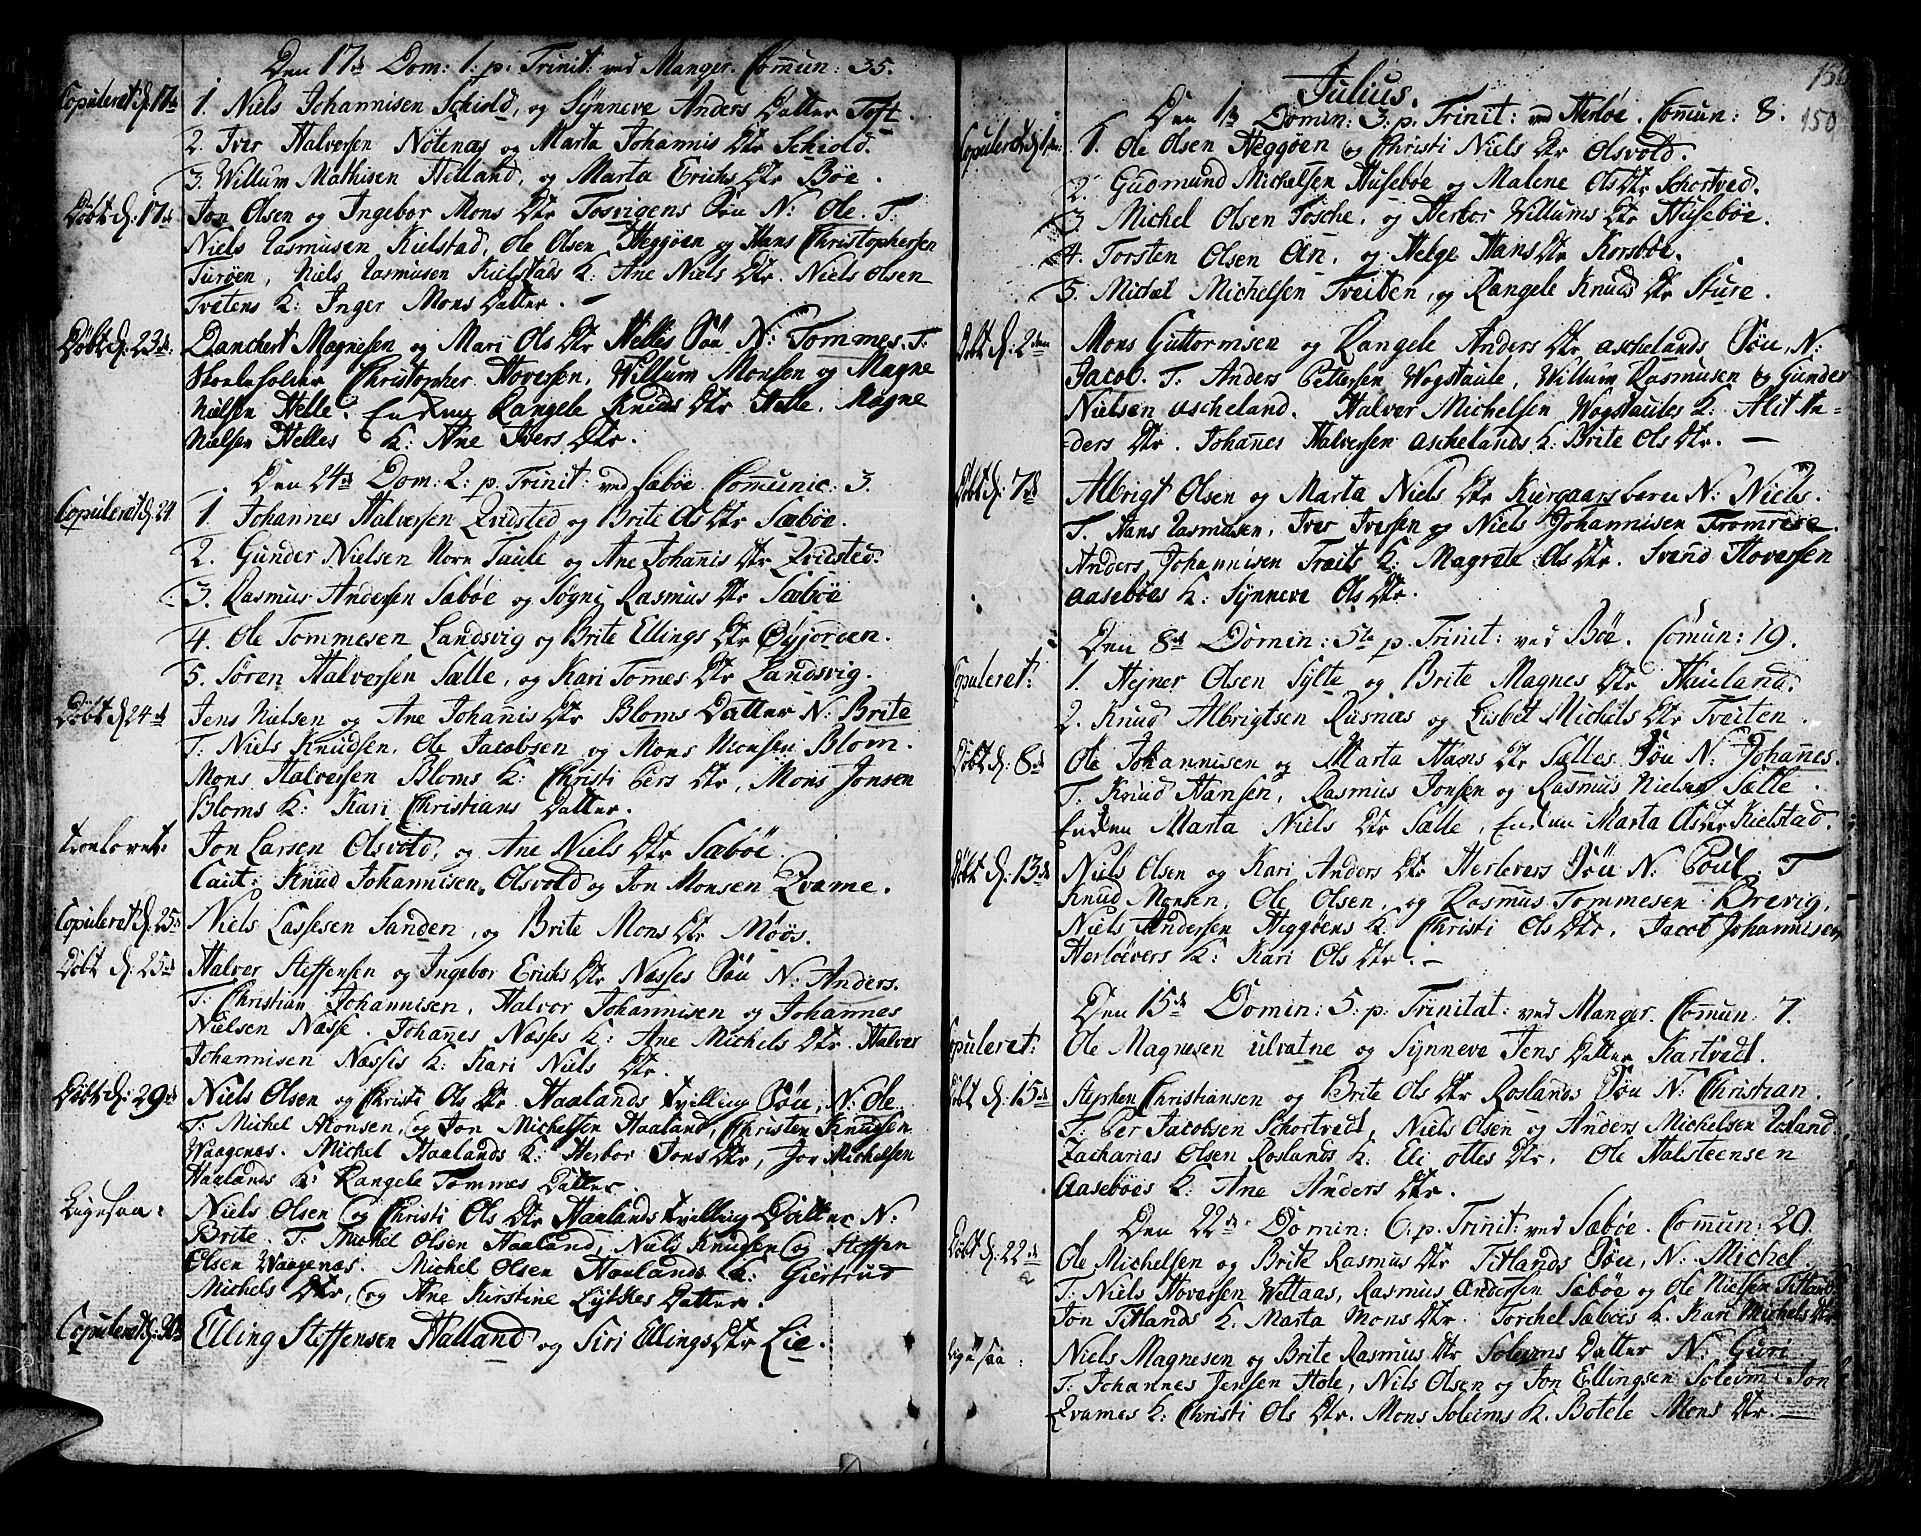 Den 17de Dom: 1. p: Trinit: ved Manger. Comun: 35.
Copuleret d: 17de 1. Niels Johannisen Schiold, og Synneve Anders Datter Toft.
2. Iver Halversen Nötenæs og Marta Johannis Dtr Schiold.
3. Willum Mathisen Helland, og Marta Erichs Dtr Böe.
Döbt d: 17de Jon Olsen og Ingebor Mons Dtr Tosvigens Sön N: Ole. T:
Niels Rasmusen Kielstad, Ole Olsen Heggöen og Hans Christophersen
Turöen, Niels Rasmusen Kielstads K: Ane Niels Dtr. Niels Olsen
Tvetens K: Inger Mons Datter. —
Döbt d: 23de Danchert Magnesen og Mari Ols Dtr Helles Sön N: Tommes. T:
Skoeleholder Christopher Hoversen, Willum Monsen og Magne
Nielsen Helle. Rangele Knuds Dtr Helle. Magne
Nielsen Helles K: Ane Ivers Dtr.
Den 24de Dom: 2: p: Trinit: ved Sæböe. Comunic: 3.
Copuleret d: 24 1. Johannes Halversen Qvidsted og Brite Ols Dtr Sæböe.
2. Gunder Nielsen Norn Taule og Ane Johanis Dtr Qvidsted.
3. Rasmus Andersen Sæböe og Sögni Rasmus Dtr Sæböe
4. Ole Tommesen Landsvig og Brite Ellings Dtr Öyjorden.
5. Sören Halversen Sælle, og Kari Tomes Dtr Landsvig.
Döbt d: 24de Jens Nielsen og Ane Johanis Dtr Bloms Datter N: Brite
T: Niels Knudsen, Ole Jacobsen og Mons Monsen Blom.
Mons Halversen Bloms K: Christi Pers Dtr, Mons Jonsen
Bloms K: Kari Christians Datter.
Troelovet: Jon Larsen Olsvold, og Ane Niels Dtr Sæböe.
Caut: Knud Johannisen Olsvold og Jon Monsen Qvame.
Copuleret d: 25de Niels Lassesen Sanden, og Brite Mons Dtr Möös.
Döbt d: 25de Halver Steffensen og Ingebor Erichs Dtr Næsses Sön N: Anders.
T: Christian Johannisen, Halvor Johannisen og Johannes
Nielsen Næsse. Johanes Næsses K: Ane Michels Dtr. Halver
Johannisen Næssis K: Kari Niels Dtr.
Döbt d: 29de Niels Olsen og Christi Ols Dtr Haalands Tvilling Sön, N: Ole
T: Michel Monsen, og Jon Michelsen Haaland, Christen Knudsen
Waagenæs. Michel Haalands K: Herbor Jons Dtr, Jon Michelsen
Haalands K: Rangele Tommes Datter.
Ligesaa: Niels Olsen og Christi Ols Dtr Haalands Tvilling Datter N:
Brite. T: Michel Olsen Haaland, Niels Knudsen og Steffen
Olsen Waagenæs. Michel Olsen Haalands K: Giertrud
Michels Dtr, og Ane Kirstine Lytskes Datter.
Copuleret d: 30de Elling Steffensen Halland og Siri Ellings Dtr Lie.
150
Julius.
Den 1te Domin: 3. p. Trinit: ved Herlöe. Comun: 8.
150
Copuleret d: 1te: 1. Ole Olsen Heggöen og Christi Niels Dtr Olsvold.
2. Gudmund Michelsen Huseböe og Malene Ols Dtr Schortved.
3. Michel Olsen Tosche, og Herbor Willums Dtr Huseböe.
4. Torsten Olsen Ön, og Helge Hans Dtr Korsböe.
5. Michel Michelsen Tveiten, og Rangele Knuds Dtr Sture.
Döbt d: 2den Mons Guttormsen og Rangele Anders Dtr Aschelands Sön, N:
Jacob. T: Anders Pettersen Wogstaule, Willum Rasmusen og Gunder
Nielsen Ascheland. Halver Michelsen Wogstaules K: Alit An-
-ders Dtr. Johanes Halversen Aschelands K: Brite Ols Dtr. —
Döbt d: 7de Albrigt Olsen og Marta Niels Dtr barn N: Niels.
T. Hans Rasmusen, Iver Iversen og Niels Johannisen Tromreve.
Anders Johannisen Træits K: Magrete Ols Dtr. Svend Hoversen
Aaseböes K: Synneve Ols Dtr.
Den 8de Domin: 5te p. Trinit: ved Böe. Comun: 19.
Copuleret: 1. Hejner Olsen Sylte og Brite Magnes Dtr Hiieland.
2. Knud Albrigtsen Rusnæs og Lisbet Michels Dtr Tveiten.
Döbt d: 8de Ole Johannisen og Marta Hans Dtr Sælles Sön N: Johannes.
T. Knud Hansen, Rasmus Jonsen og Rasmus Nielsen Sælle.
Marta Niels Dtr Sælle, Marta Ols Dtr Kielstad.
Döbt d: 13de Niels Olsen og Kari Anders Dtr Herlevers Sön N: Poul. T
Knud Monsen, Ole Olsen, og Rasmus Tommesen Brevig,
Niels Andersen Heggöens K: Christi Ols Dtr, Jacob Johannisen
Herlöevers K: Kari Ols Dtr. —
Den 15de Domin: 5: p: Trinitat: ved Manger. Comun: 7.
Copuleret: Ole Magnesen Ulvatne og Synneve Jens Datter Kartvedt.
Döbt d: 15de Stephen Christiansen og Brite Ols Dtr Roslands Sön N: Christian.
T: Per Jacobsen Schortvedt, Niels Olsen og Anders Michelsen Roland.
Zacharias Olsen Roslands K: Eli Ottes Dtr. Ole Halsteensen
Aaseböes K: Ane Anders Dtr.
Den 22de Domin: 6. p. Trinit: ved Sæböe. Comun: 20.
Döbt d: 22de Ole Michelsen og Brite Rasmus Dtr Titlands Sön, N: Michel.
T: Niels Hoversen Wettaas, Rasmus Andersen Sæböe og Ole Nielsen Titland
Jon Titlands K. Marta Mons Dtr. Torchel Sæböes K. Kari Michels Dtr
Ligesaa: Niels Magnesen og Brite Rasmus Dtr Soleims Datter N: Guri.
T: Johannes Jensen Hole, Nils Olsen og Jon Ellingsen Soleim. Jon
Qvames K: Christi Ols Dtr. Mons Soleims K. Botele Mons Dtr. —